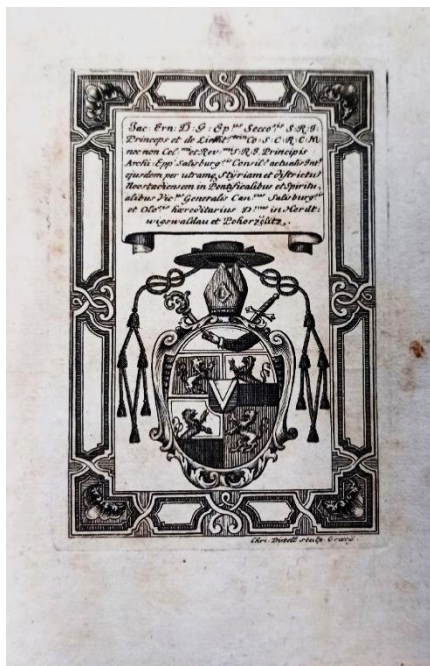 Jac: Ern: D: G: Ep:pus Secco:sis S: R: I:
Princeps et de Liecht:stein Co: S. C. R. C. M
nec non Cel:mi et Rev:mi S: R: I: Principis
Archi: Epp. Salisburg:sis Consil:s actualis Int:s
ejusdem per utramq. Styriam et districtus
Neostadiensem in Pontificalibus et Spiritu,
alibus Vic:us Generalis Can:cus Salisburg:sis
et Olo:sis hæreditarius D:nus in Herdt:
wigswaldau et Pohorzelitz.
Chr: Dietell sculp. Græcÿ.